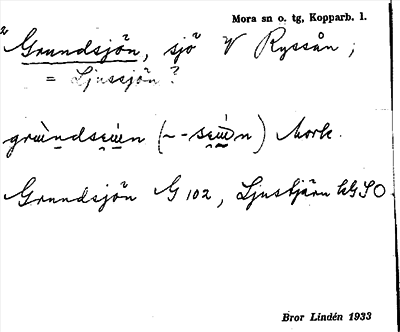 Mora sn o. tg, Kopparb. l.
Grundsjön, sjö V Ryssån;
= Ljussjön?
Mork.
Grundsjön G 102, Ljustjärn
Bror Lindén 1933